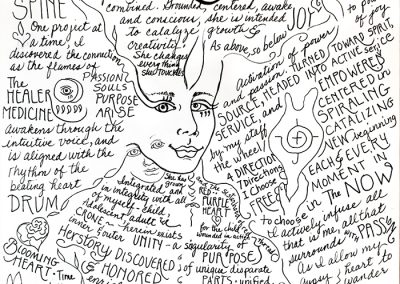 SPINE
One project at
a time, I
discovered the connection
as the flames of
PASSION
SOULS
PURPOSE
ARISE
The
HEALER
MEDICINE
awakens through the
intuitive voice, and
is aligned with the
rhythm of the
beating heart
DRUM
Blooming
HEART. Time
combined. Grounded,
and conscious,
to catalyze
Creativity!
She changes
everything
She TOUCHES
centered, awake,
she is intended
growth &
As above, so below
JOY
of joy
activation of power
and passion.
SOURCE, HEADED
SERVICE, and
by my staff
the wheel
4 DIRECTIONS
7 Directions
I Choose
FREEDOM
TURNED TOWARD SPIRIT,
INTO ACTIVE SERVICE
EMPOWERED
CENTERED in
SPIRALING
CATALIZING
NEW beginning
EACH & EVERY
MOMENT IN
in The NOW
to choose
I actively infuse all
that is me, all that
surrounds me
PASSION
As I allow my
gypsy heart to
wander
She has
grown
Integrated and
in integrity with all
of myself - child,
adolescent, adult &
CRONE - herein exists
inner & outer UNITY - a singularity of
PURPOSE
of unique disparate
PARTS - unified
HERSTORY DISCOVERED
& HONORED
RED
PURPLE
HEART
for the child
wounded in action